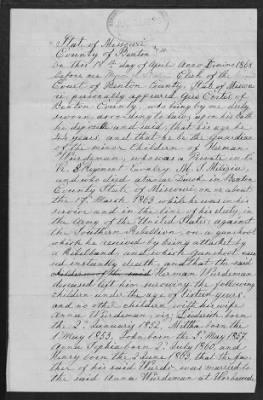 State of Missouri
County of Benton
On this 18th day of April Anno Domini 1864
before me Clerk of the
Court of Benton County, State of Missouri
personally appeared
Benton County, who being by me duly
sworn, according to law, upon his oath
he deposeth and said, that his age is
years, and that he is the guardian
of the minor children of Herman
Wiedeman, who was a Private in Co
Regiment Cavalry M. S. Militia
and who died at in Benton
County State of Missouri, on or about
the 17th March 1863 while he was in his
service and in the line of his duty, in
the Army of the United States, against
the Southern Rebellion, on a gunshot
which he received by being attacked by
a Rebelband, and which gunshot
instantly death, and that the said
children of the said Herman Wiedeman
deceased left him surviving the following
children under the age of sixteen years,
and no other children with his wife
Anna Wiedeman, viz; Diederich born
the 2d January 1852, Metha born the
1 May 1853, John born the May 1857
Anna Sophia born 2d July 1860, and
Henry born the 2 June 1863, that the fa-
ther of his said Wards was married to
the said Anna Wiedeman at